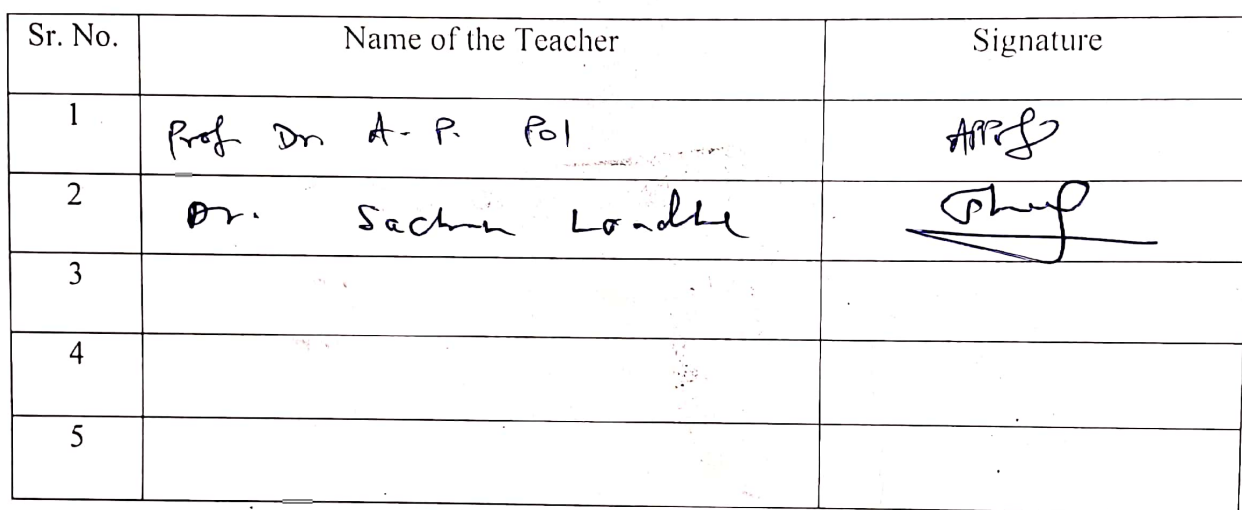 Sr. No. Name of the Teacher Signature
1 Prof Dr. A. P. Pol
2 Dr. Sachin Londhe
3
4
5